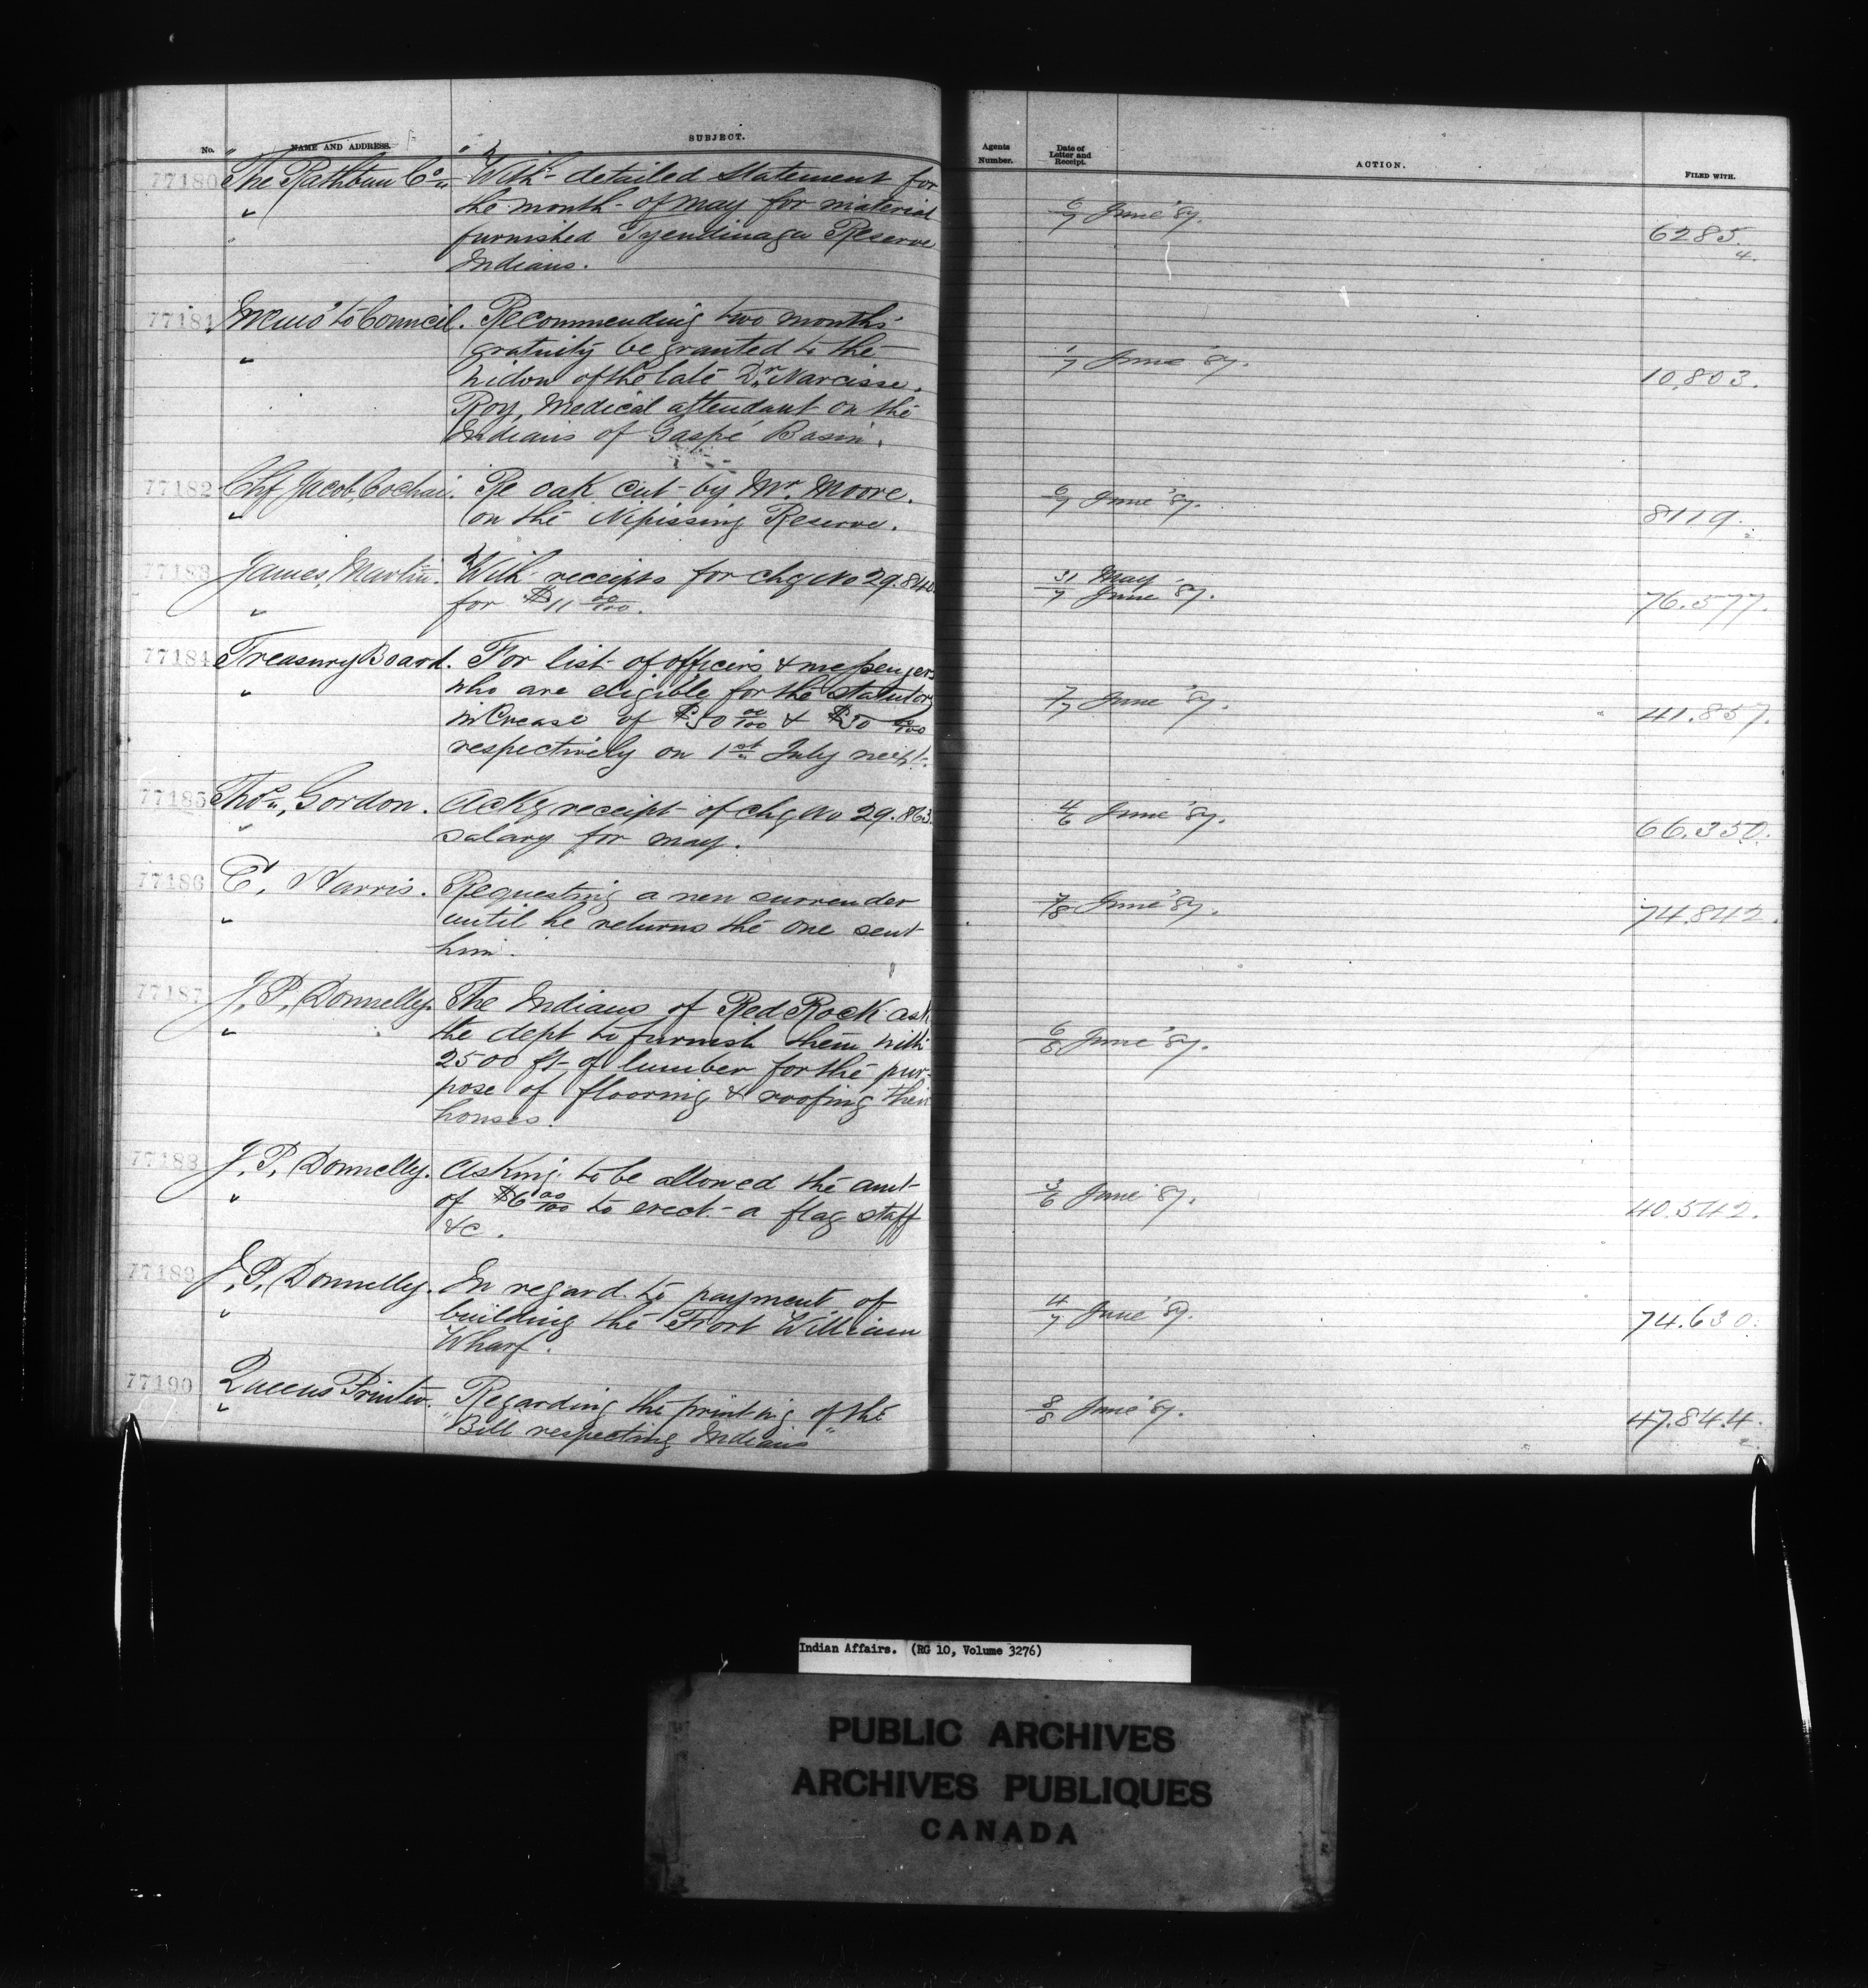 No. NAME AND ADDRESS. SUBJECT. Agents Number. Date of Letter and Receipt. ACTION. FILED WITH.
77180 The Rathbun Co. With detailed statement for
" the month of May for material 6/7 June '87.
furnished Tyendinaga Reserve 6285.
Indians. 4.
77181 Memo to Council. Recommending two months'
" gratuity be granted to the 1/7 June '87.
widow of the late Dr. Narcisse 10,803.
Roy, Medical attendant on the
Indians of Gaspé Basin.
77182 Chf. Jacob Cochai. Re oak cut by Mr. Moore. 6/7 June '87.
" on the Nipissing Reserve. 8119.
77183 James Martin. With receipts for chq No 29.840 31 May
" for $11 00/100. 7 June '87. 76.577.
77184 Treasury Board. For list of officers & messengers
" who are eligible for the statutory 7/7 June '87.
increase of $50 00/100 & $30 00/100 41.857.
respectively on 1st July next.
77185 Thos. Gordon. Ackg receipt of chq No 29.863. 4/6 June '87.
" salary for May. 66.350.
77186 C. Harris. Requesting a new surrender 7/8 June '87.
" until he returns the one sent 74.842.
him.
77187 J. P. Donnelly. The Indians of Red Rock ask
" the dept to furnish them with 6/8 June '87.
2500 ft of lumber for the pur-
pose of flooring & roofing their
houses.
77188 J. P. Donnelly. Asking to be allowed the amt
" of $6 00/100 to erect a flag staff 3/6 June '87. 40.542.
&c.
77189 J. P. Donnelly. In regard to payment of
" building the Fort William 4/7 June '87. 74.630.
Wharf.
77190 Queens Printer. Regarding the printing of the 8/8 June '87. 47.844.
" "Bill respecting Indians" 2.
Indian Affairs. (RG 10, Volume 3276)
PUBLIC ARCHIVES
ARCHIVES PUBLIQUES
CANADA